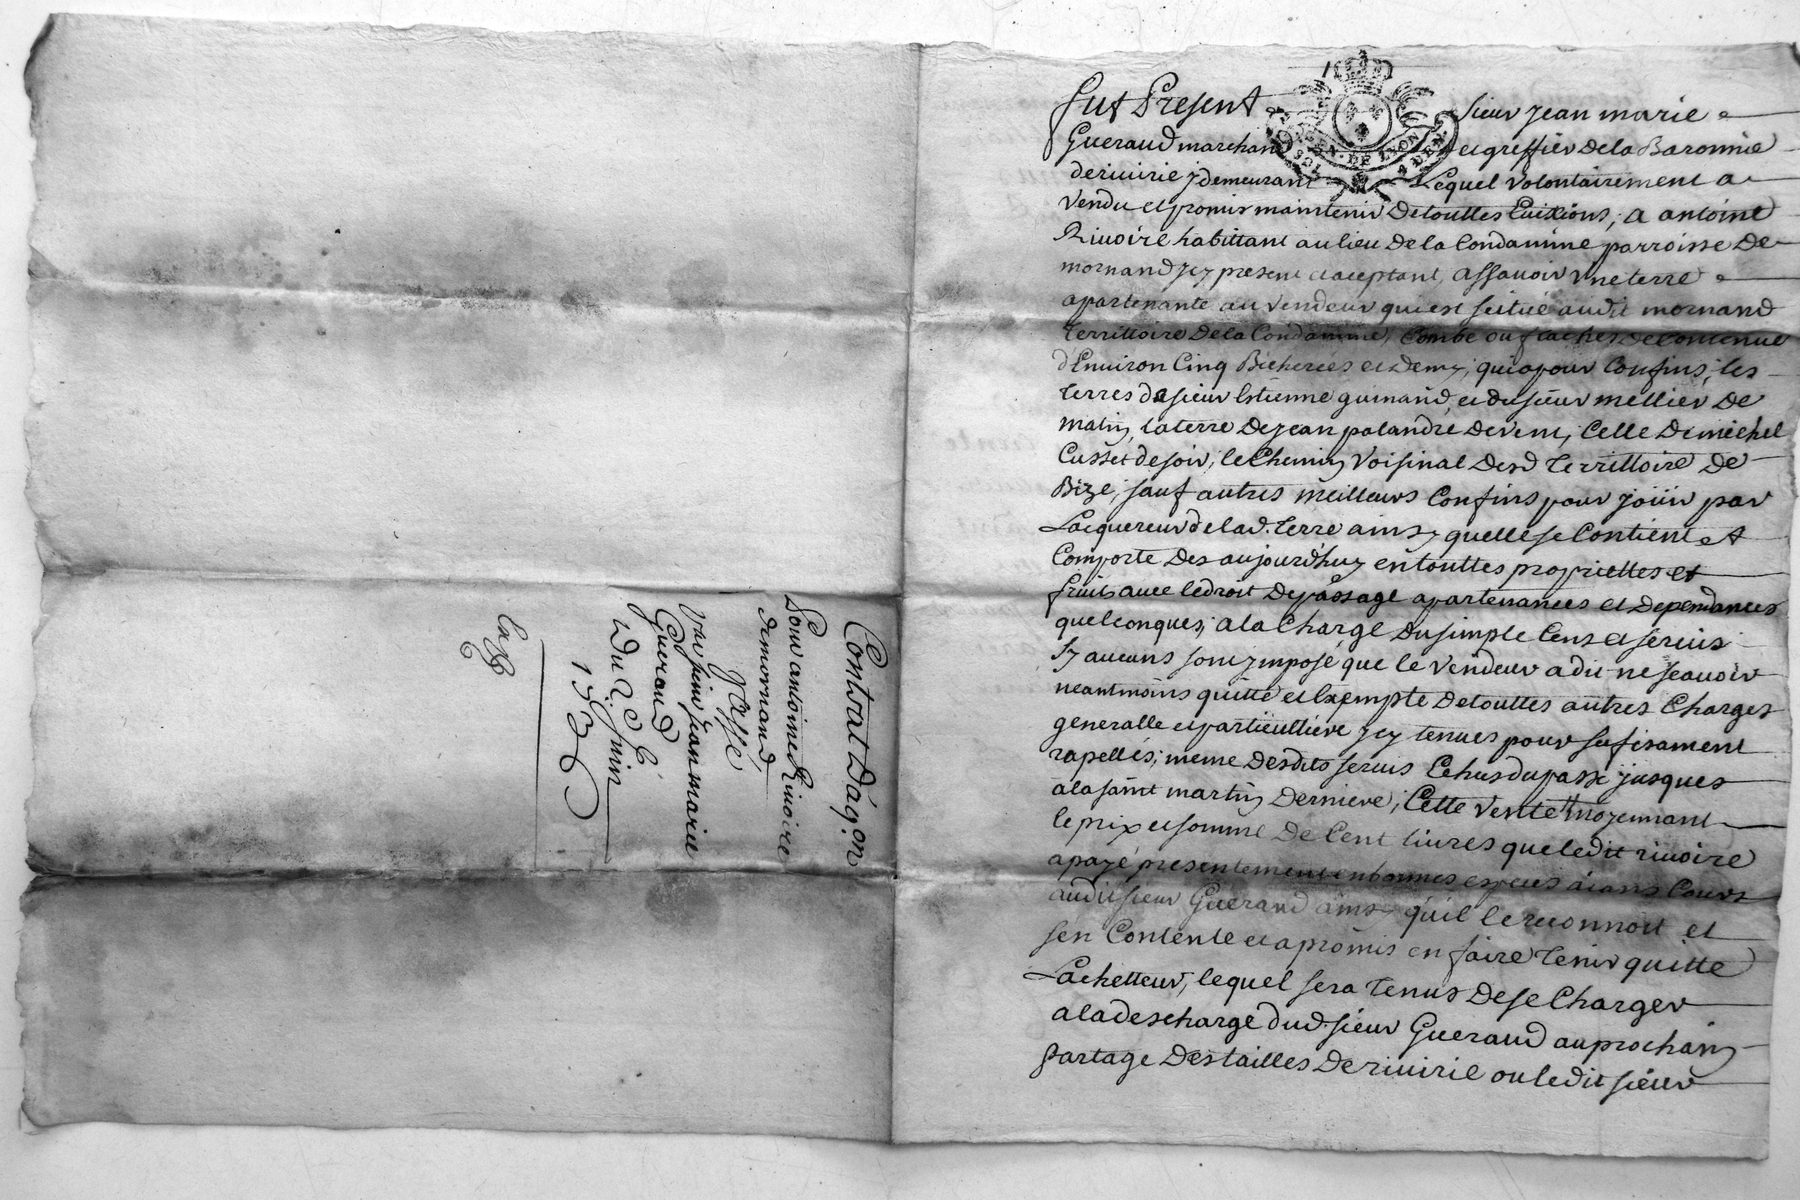 Contrat Dáq.on
Pour antoine Rivoire
de mornand
passé
Par sieur Jean marie
Gueraud
Du 26 Juin
1736
GEN · DE LYON
fut Present sieur jean marie
Gueraud marchand et greffier de la Baronnie
de rivirie y demeurant Lequel volontairement a
vendu et promis maintenir De touttes Evixions, a antoine
Rivoire habittant au lieu De la Condamine parroisse De
mornand icy present et aceptant, assavoir vne terre
apartenante au vendeur qui est scitué audit mornand
territtoire De la Condamine, Combe ou flaches De contenue
d'Environ Cinq Bicherées et Demy, qui a pour Confins, les
terres de sieur Estienne guinand, et du sieur mellier De
matin, la terre De jean palandre De vent, Celle De michel
Cusset de soir, le Chemin voisinal Desd territtoire De
Bize, sauf autres meilleurs Confins pour joüir par
Lacquereur de lad. terre ainsy quelle se Contient et
Comporte Des aujourd'huy en touttes propriettes et
fruits avec le droit De passage apartenances et Dependances
quelconques, a la Charge Du simple Cens et servis
sy aucuns sont ymposé que le vendeur a dit ne sçavoir
neantmoins quitte et Exempte De touttes autres Charges
generalle et particulliere icy tenues pour sufisament
rapellés; meme Desdits servis Echus du passé jusques
a la saint martin Derniere; Cette vente moyennant
le prix et somme De Cent livres que ledit rivoire
a payé presentement en bonnes especes aians Cours
audit sieur Gueraud ainsy qu'il le reconnoit et
sen Contente et a promis en faire tenir quitte
Lachetteur, lequel sera tenus De se Charger
a la descharge dud. sieur Gueraud au prochain
partage Des tailles De rivirie ou ledit sieur